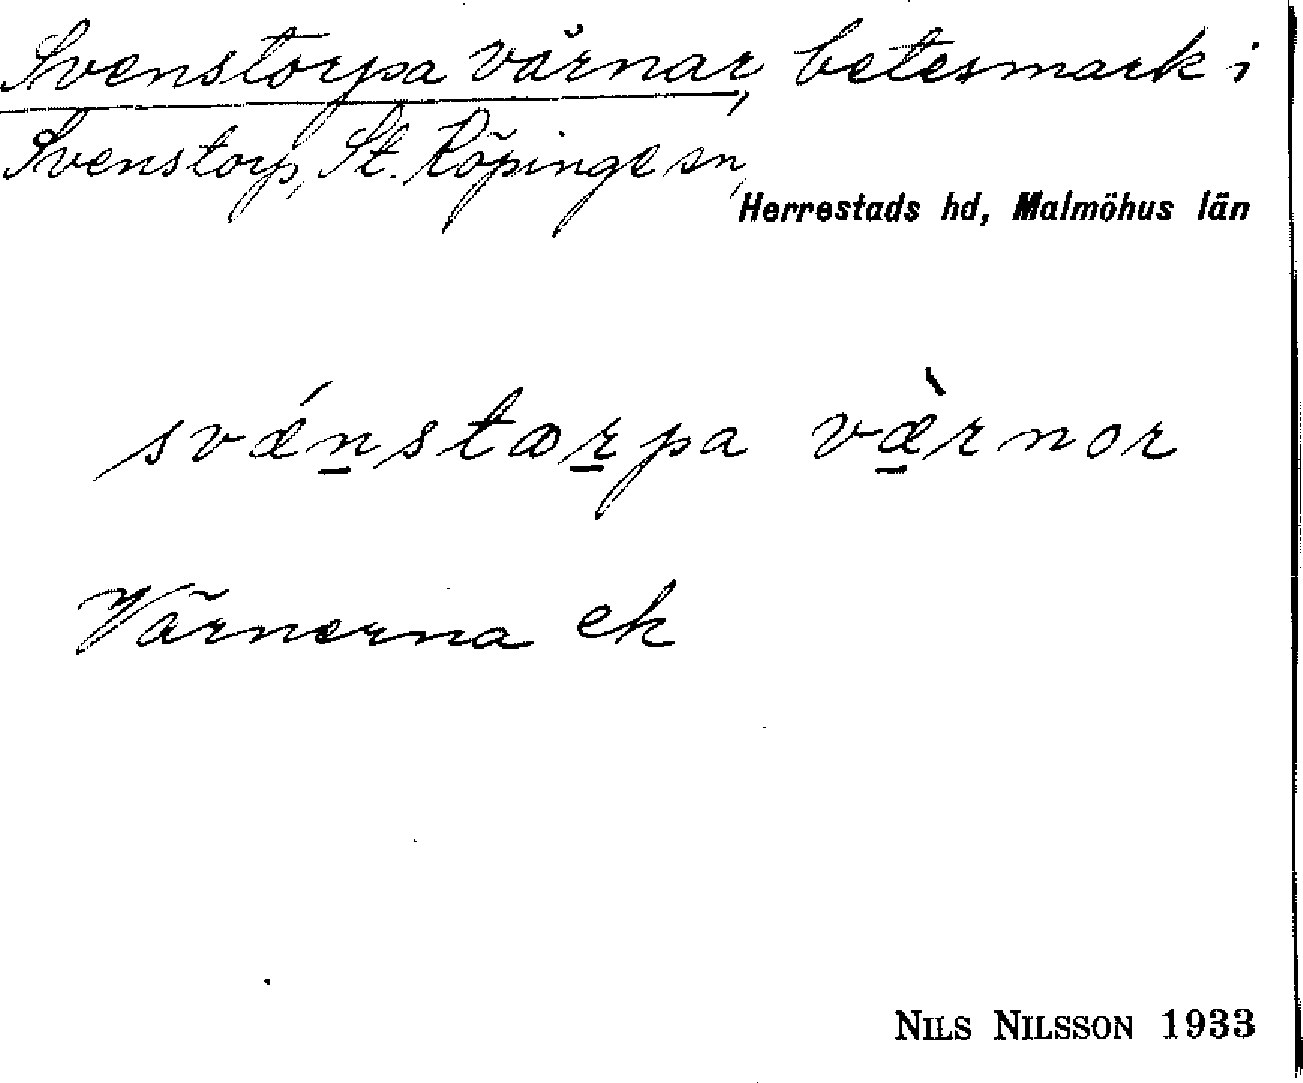 Svenstorpa värnar, betesmark i
Svenstorp, St. Köpinge sn,
Herrestads hd, Malmöhus län
svǽn̲stœr̲pa væ̲̀rnor
Värnerna ek
NILS NILSSON 1933